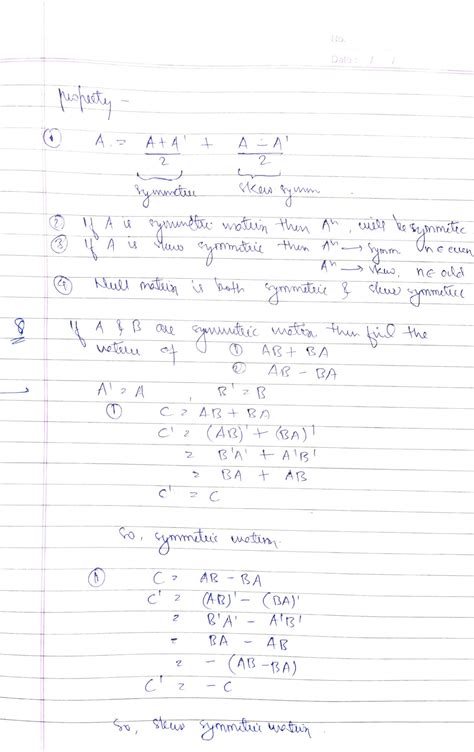 No.
Date: / /
property —
① A = A+A' / 2 + A-A' / 2
symmetric skew symm.
② If A is symmetric matrix then Aⁿ, will be symmetric
③ If A is skew symmetric then Aⁿ → symm n ∈ even
Aⁿ → skew, n ∈ odd
④ Null matrix is both symmetric & skew symmetric
8 If A & B are symmetric matrix then find the
nature of ① AB + BA
② AB - BA
→ A' = A , B' = B
① C = AB + BA
C' = (AB)' + (BA)'
= B'A' + A'B'
= BA + AB
C' = C
So, symmetric matrix.
② C = AB - BA
C' = (AB)' - (BA)'
= B'A' - A'B'
= BA - AB
= - (AB - BA)
C' = - C
So, skew symmetric matrix.